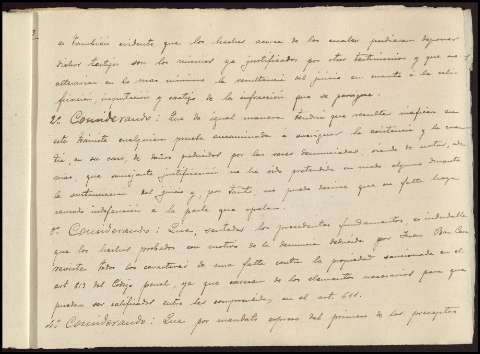 es tambien evidente que los hechos acerca de los cuales pudieran deponer
dichos testigos son los mismos ya justificados por otros testimonios y que no
alteraria en lo mas minimo la resultancia del juicio en cuanto á la cali-
ficacion, imputacion y castigo de la infraccion que se persigue.
2º Considerando: Que de igual manera tendria que resultar ineficaz en
este trámite cualquiera prueba encaminada á averiguar la existencia y la cuan-
tia, en su caso, de daños padecidos por las reses denunciadas, siendo de notar, ade-
mas, que semejante justificacion no ha sido pretendida en modo alguno durante
la sustanciacion del juicio y, por tanto, no puede decirse que su falta haya
causado indefension á la parte que apela.
3º Considerando: Que, sentados los precedentes fundamentos, es indudable
que los hechos probados con motivo de la denuncia deducida por Juan
reviste todos los caracteres de una falta contra la propiedad sancionada en el
art 613 del Código penal, ya que carece de los elementos necesarios para que
puedan ser calificados entre las comprendidas en el art. 611.
4º Considerando: Que por mandato expreso del primero de los preceptos